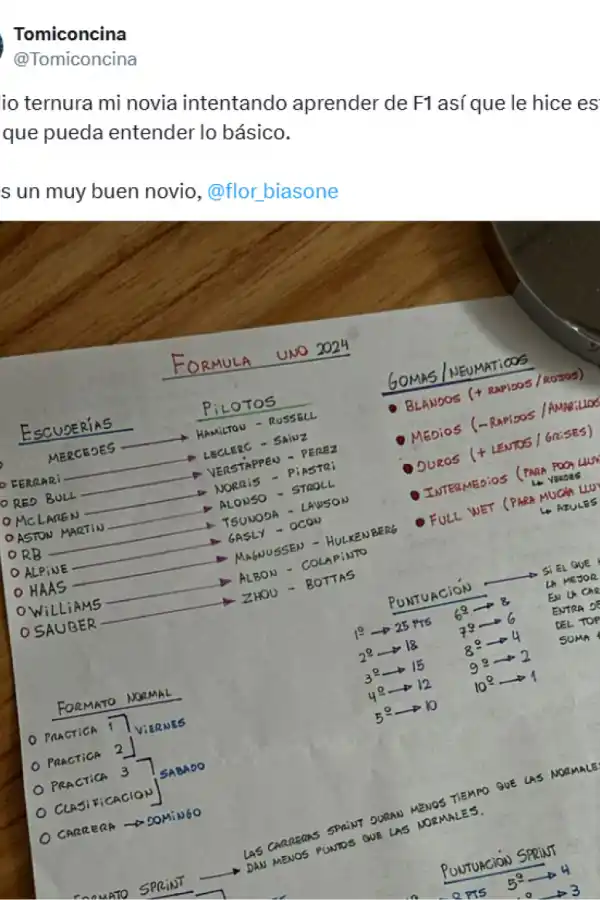 Tomiconcina
@Tomiconcina
io ternura mi novia intentando aprender de F1 así que le hice es
que pueda entender lo básico.
s un muy buen novio, @flor_biasone
FORMULA UNO 2024
ESCUDERÍAS
MERCEDES
O FERRARI
O RED BULL
O McLAREN
O ASTON MARTIN
O RB
O ALPINE
O HAAS
O WILLIAMS
O SAUBER
PILOTOS
HAMILTON - RUSSELL
LECLERC - SAINZ
VERSTAPPEN - PEREZ
NORRIS - PIASTRI
ALONSO - STROLL
TSUNODA - LAWSON
GASLY - OCON
MAGNUSSEN - HULKENBERG
ALBON - COLAPINTO
ZHOU - BOTTAS
GOMAS/NEUMATICOS
• BLANDOS (+ RAPIDOS/ROJOS)
• MEDIOS (-RAPIDOS /AMARILLOS
• DUROS (+ LENTOS / GRISES)
• INTERMEDIOS (PARA POCA LLUVI
↳ VERDES
• FULL WET (PARA MUCHA LLUV
↳ AZULES
PUNTUACIÓN
1º → 25 PTS
2º → 18
3º → 15
4º → 12
5º → 10
6º → 8
7º → 6
8º → 4
9º → 2
10º → 1
SI EL QUE
LA MEJOR
EN LA CAR
ENTRA DE
DEL TOP
SUMA
FORMATO NORMAL
O PRACTICA 1
O PRACTICA 2
VIERNES
O PRACTICA 3
O CLASIFICACION
SABADO
O CARRERA → DOMINGO
FORMATO SPRINT
LAS CARRERAS SPRINT DURAN MENOS TIEMPO QUE LAS NORMALE
DAN MENOS PUNTOS QUE LAS NORMALES.
PUNTUACIÓN SPRINT
8 PTS
5º → 4
→ 3